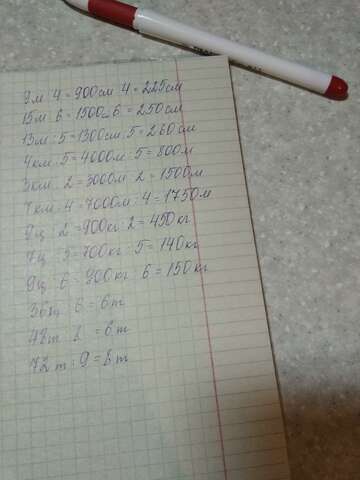 9м 4 = 900см 4 = 225см
15м 6 = 1500см 6 = 250см
13м : 5 = 1300см : 5 = 260см
4км : 5 = 4000м : 5 = 800м
3км : 2 = 3000м 2 = 1500м
7км : 4 = 7000м : 4 = 1750м
9ц : 2 = 900кг : 2 = 450кг
7ц : 5 = 700кг : 5 = 140кг
9ц 6 = 900кг 6 = 150кг
36т 6 = 6т
48т = 6т
72т : 9 = 8т